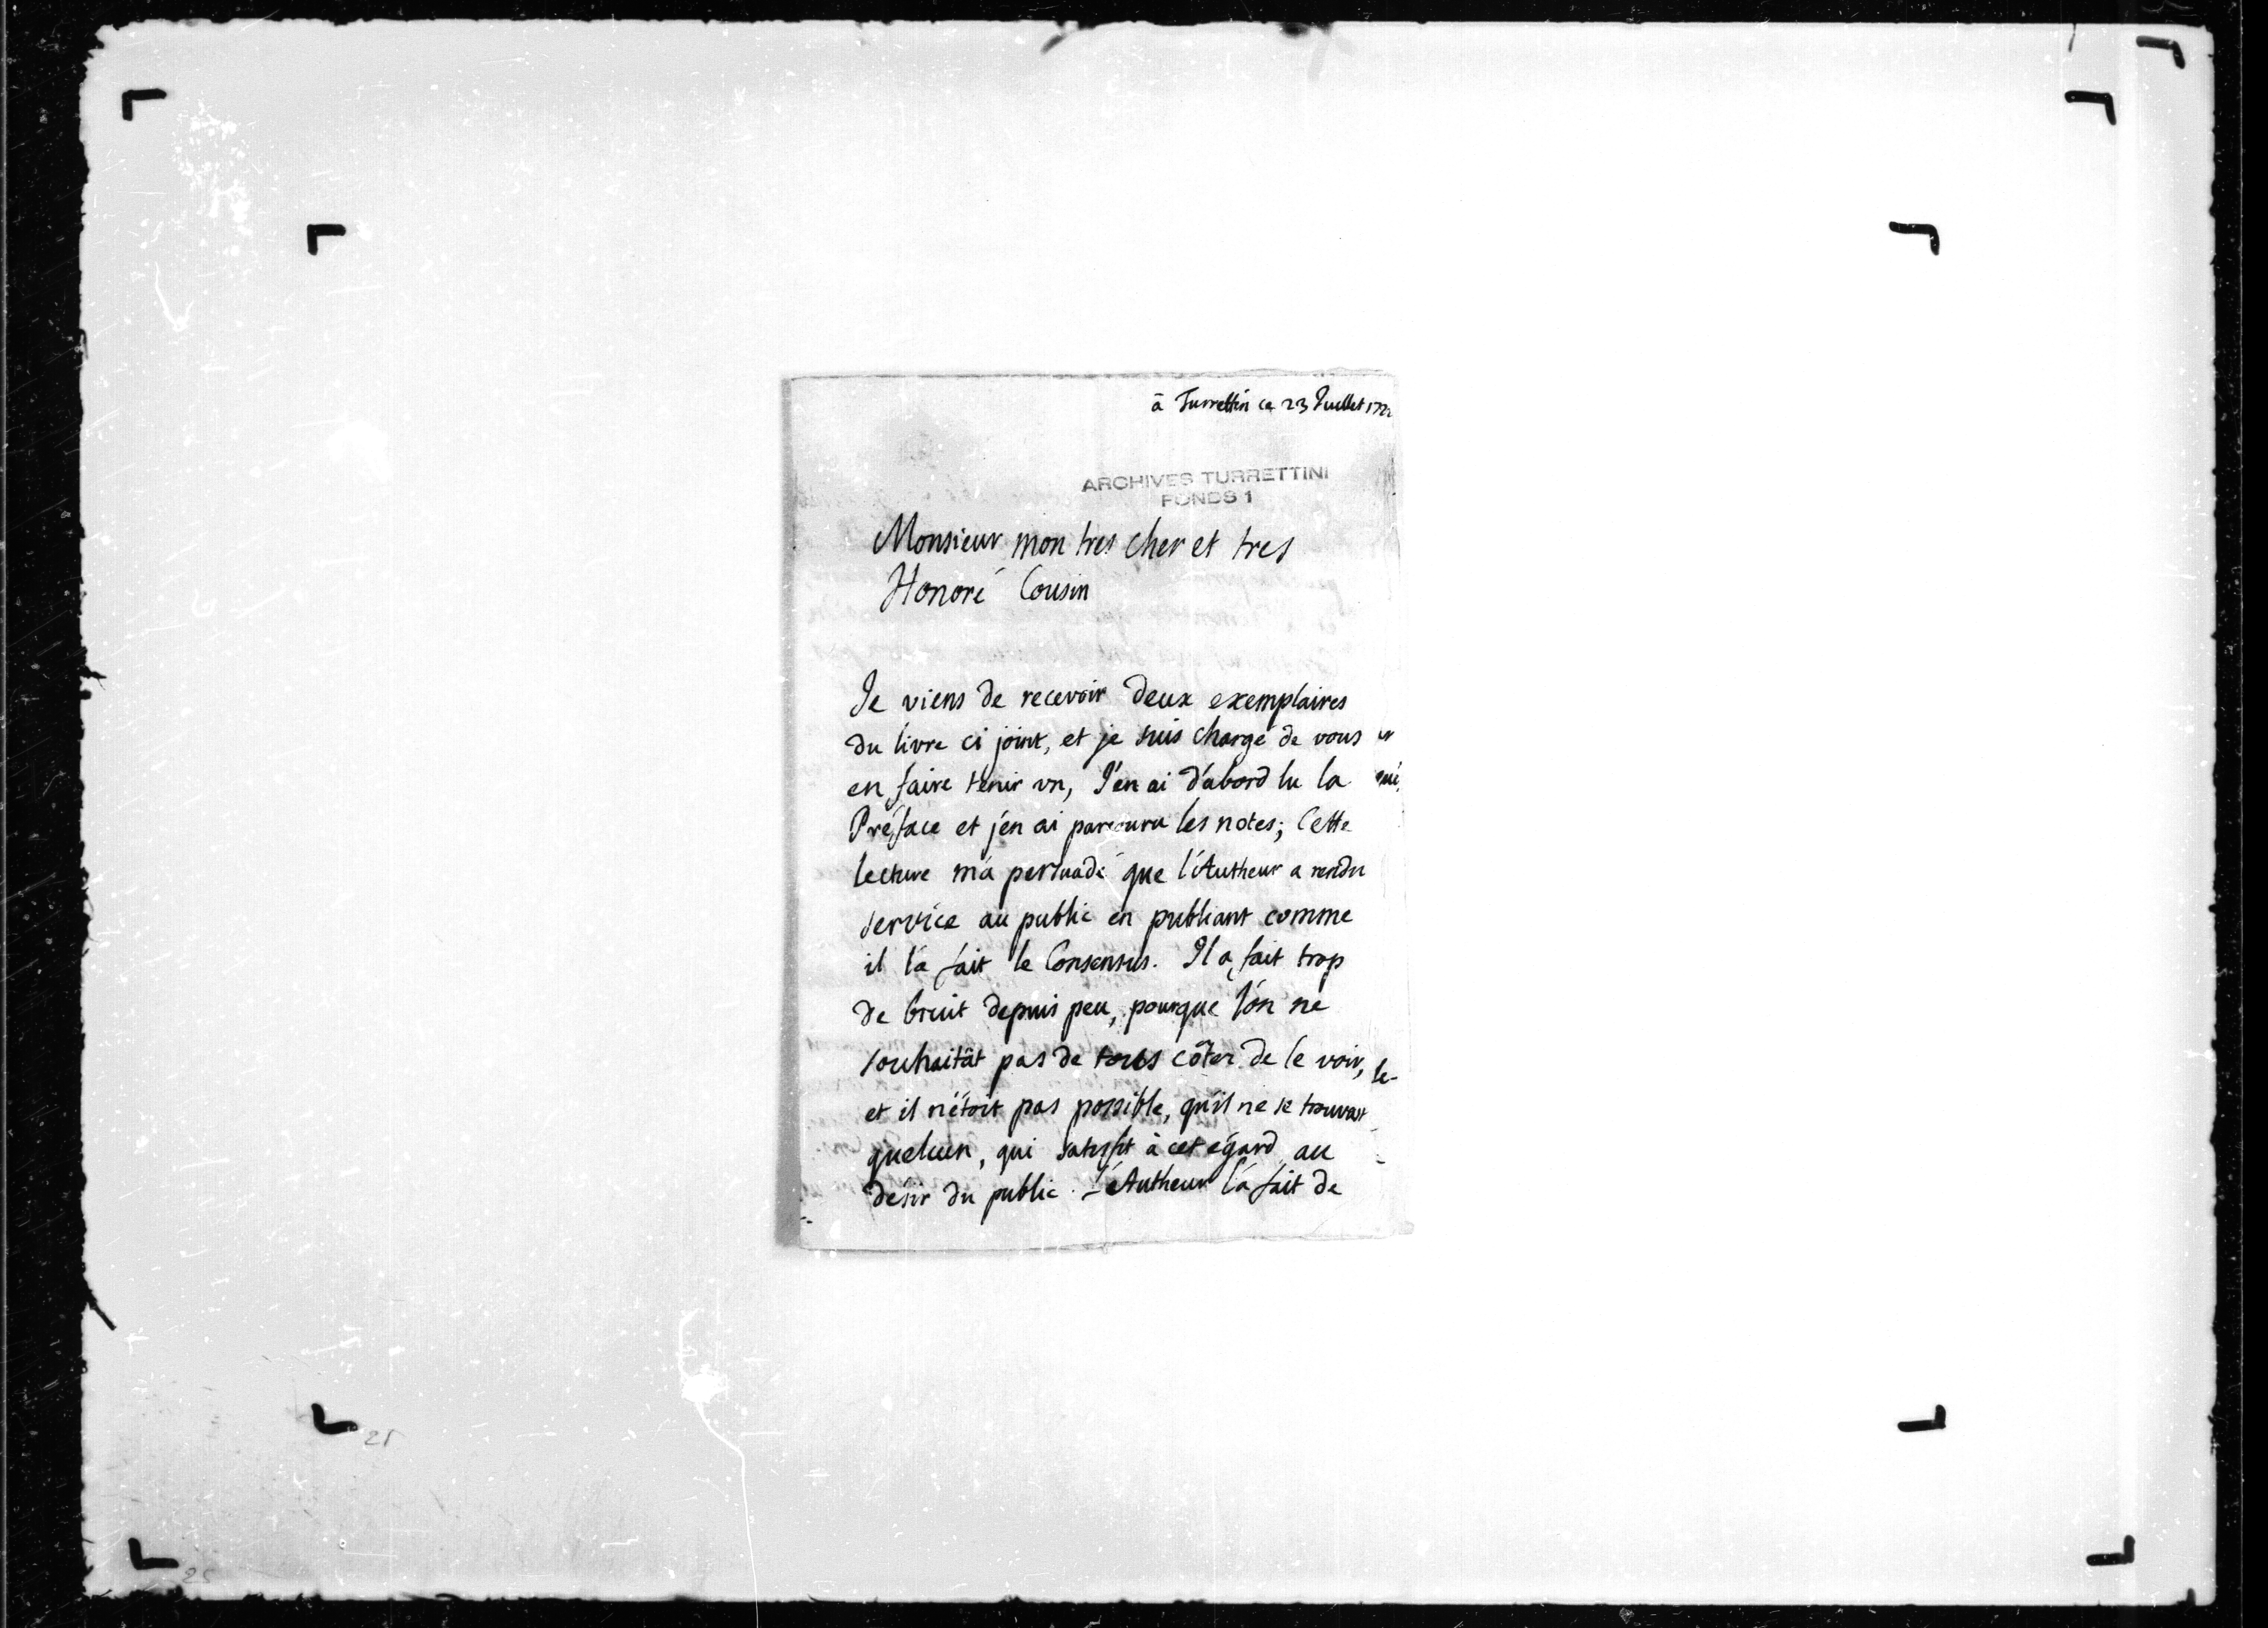 à Turrettin ce 23 Juillet 172
ARCHIVES TURRETTINI
FONDS 1
Monsieur mon tres cher et tres
Honoré Cousin
Je viens de recevoir deux exemplaires
du livre ci joint, et je suis chargé de vous
en faire tenir vn, J'en ai d'abord lu la
Préface et j'en ai parcouru les notes; Cette
lecture m'a persuadé que l'Autheur a rendu
service au public en publiant comme
il l'a fait le Consensus. Il a fait trop
de bruit depuis peu, pourque l'on ne
souhaitât pas de tous côtez de le voir,
et il n'étoit pas possible, qu'il ne se trouvast
quelcun, qui satisfit à cet égard au
désir du public. L'Autheur l'a fait de
25